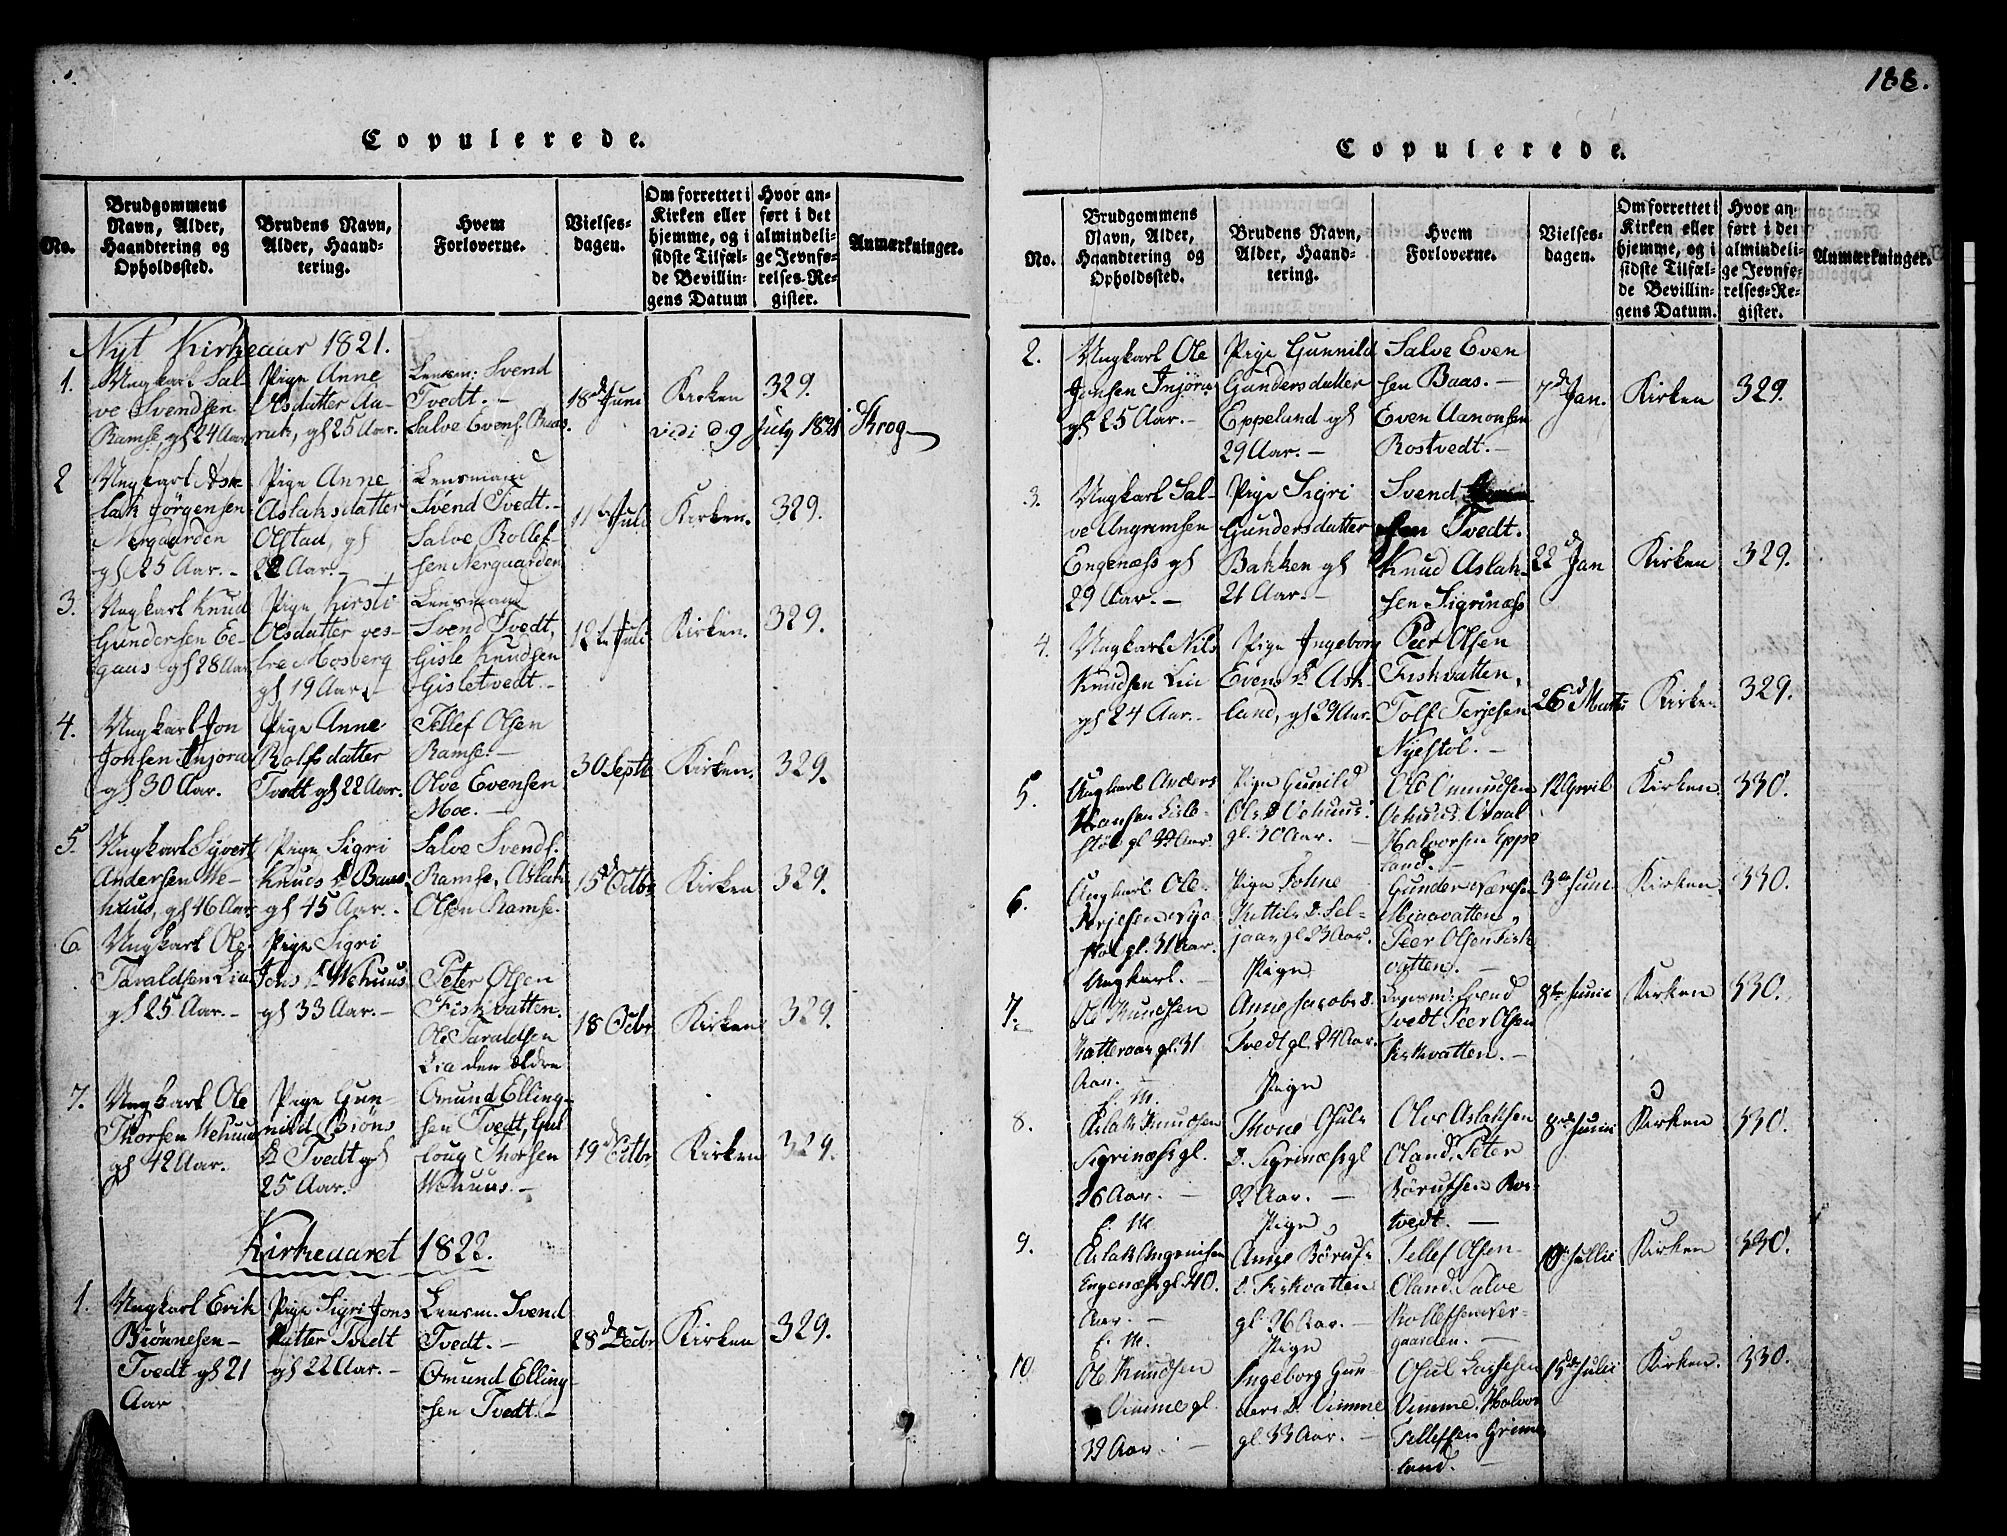 188.
Copulerede.
No.
Brudgommens
Navn, Alder,
Haandtering og
Opholdssted.
Brudens Navn,
Alder, Haand-
tering.
Hvem
Forloverne.
Vielses-
dagen.
Om forrettet i
Kirken eller
hjemme, og i
sidste Tilfæl-
de Bevillin-
gens Datum
Hvor an-
ført i det
almindeli-
ge Jevnfø-
relses-Re-
gister.
Anmærkninger.
Nyt Kirkeaar 1821.
1.
Ungkarl Sal-
ve Svendsen
Ramse, gl 24 Aar
Pige Anne
Olsdatter Au-
ruk, gl 25 Aar.
Lensm: Svend
Tvedt. -
Salve Evens. Baas.
18d Juni
Kirken
329.
vidi d 9 July 1821 Krog
2
Ungkarl As-
lak Jörgensen
Nergaarden
gl 25 Aar. -
Pige Anne
Aslaksdatter
Olstad, gl
22 Aar. -
Lensmand
Svend Tvedt. -
Salve Rollef-
sen Nergaarden
11te Juli
Kirken.
329.
3.
Ungkarl Knud
Gundersen Ee-
gaus gl 28 Aar
Pige Kirsti
Olsdatter ves-
tre Mosberg
gl 19 Aar. -
Lensmand
Svend Tvedt,
Gisle Knudsen
Gisletvedt. -
12te Juli
Kirken.
329.
4.
Ungkarl Jon
Jonsen Injøru
gl 30 Aar.
Pige Anne
Rolfsdatter
Tvedt gl 22 Aar.
Tellef Olsen
Ramse. -
Olve Evensen
Moe. -
30 Septb
Kirken.
329.
5.
Ungkarl Syvert
Andersen We-
huus, gl 46 Aar
Pige Sigri
Knuds D Baas
gl 45 Aar. -
Salve Svends.
Ramse, Aslak
Olsen Ramse.
15d Octbr
Kirken
329.
6
Ungkarl Ole
Taraldsen Lia
gl 25 Aar. -
Pige Sigri
Jons D Wehuus
gl 33 Aar. -
Peter Olsen
Fiskvatten.
Ole Taraldsen
Lia den ældre
18 Octbr
Kirken
329.
7.
Ungkarl Ole
Thorsen Wehuus
gl 42 Aar.
Pige Gun-
nild Biøns
D Tvedt gl
25 Aar.
Omund Elling-
sen Tvedt, Gul
loug Thorsen
Wehuus. -
19d Octbr
Kirken
329.
Kirkeaaret 1822.
1.
Ungkarl Erik
Biønnesen -
Tvedt gl 21
Aar
Pige Sigri Jons
datter Tvedt
gl 22 Aar. -
Lensm. Svend
Tvedt. -
Omund Elling
sen Tvedt. -
28d Decbr
Kirken
329.
Copulerede.
No.
Brudgommens
Navn, Alder,
Haandtering og
Opholdssted.
Brudens Navn,
Alder, Haand-
tering.
Hvem
Forloverne.
Vielses-
dagen.
Om forrettet i
Kirken eller
hjemme, og i
sidste Tilfæl-
de Bevillin-
gens Datum.
Hvor an-
ført i det
almindeli-
ge Jevnfø-
relses-Re-
gister.
Anmærkninger.
2.
Ungkarl Ole
Jonsen Injøru
gl 25 Aar. -
Pige Gunnild
Gundersdatter
Eppeland gl
29 Aar. -
Salve Even
sen Baas. -
Even Aanonsen
Rostvedt. -
7d Jan.
Kirken
329.
3.
Ungkarl Sal-
ve Ungrimsen
Engenæss gl
29 Aar. -
Pige Sigri
Gundersdatter
Bakken gl
21 Aar. -
Svend
Tvedt.
Knud Aslak-
sen Sigrinæss
22d Jan
Kirken
329.
4.
Ungkarl Nils
Knudsen Lia
gl 24 Aar. -
Pige Ingeborg
Evens D Ask-
land, gl 29 Aar.
Peer Olsen
Fiskvatten,
Tolf Terjesen
Nyestøl. -
26d Marts
Kirken
329.
5.
Ungkarl Anders
Hansen Lisle-
støl gl
Pige Gunild
Ols D Vehuus.
gl. 30 Aar. -
Ole Omundsen
Vehuus
Halvorsen Eppe
land. -
12 April
Kirken.
330.
6.
Ungkarl Ole
Terjesen Nye
støl gl. 31 Aar.
Pige Tohne
Kittils D. Sel-
jaas gl. 23 Aar.
Gunder
Peer Olsen Fisk
vatten. -
3de Juni
Kirken
330.
7.
Ungkarl. -
Ole Knudsen
Katteraas gl. 31
Aar.
Pige
Anne Jacobs D.
Tvedt gl. 24 Aar.
Lensm: Svend
Tvedt Peer Olsen
Fiskvatten. -
8de Junii
Kirken
330.
8.
Aslak Knudsen
Sigrinæss gl.
26 Aar. -
Pige
Thone Osuls
D. Sigrinæss gl
22 Aar. -
Olav Aslaksen
Oland. Peter
Börufsen Ros-
tvedt. -
8de Junii
Kirken
330.
9.
Aslak Ungrimsen
Engenæss gl. 40.
Aar. -
Pige
Anne Börufs
D. Fiskvatten
gl. 26 Aar. -
Tellef Olsen
Oland. Salve
Rollefsen Ner-
gaarden. -
10de Jullii
Kirken
330.
10.
Ole Knudsen
Vimme gl
Aar -
Pige
Ingeborg Gun-
ders D. Vimme
gl. 33 Aar. -
Osul Lassesen
Vimme. Halvor
Tellefsen Grime
land. -
15de Julii
Kirken.
330.